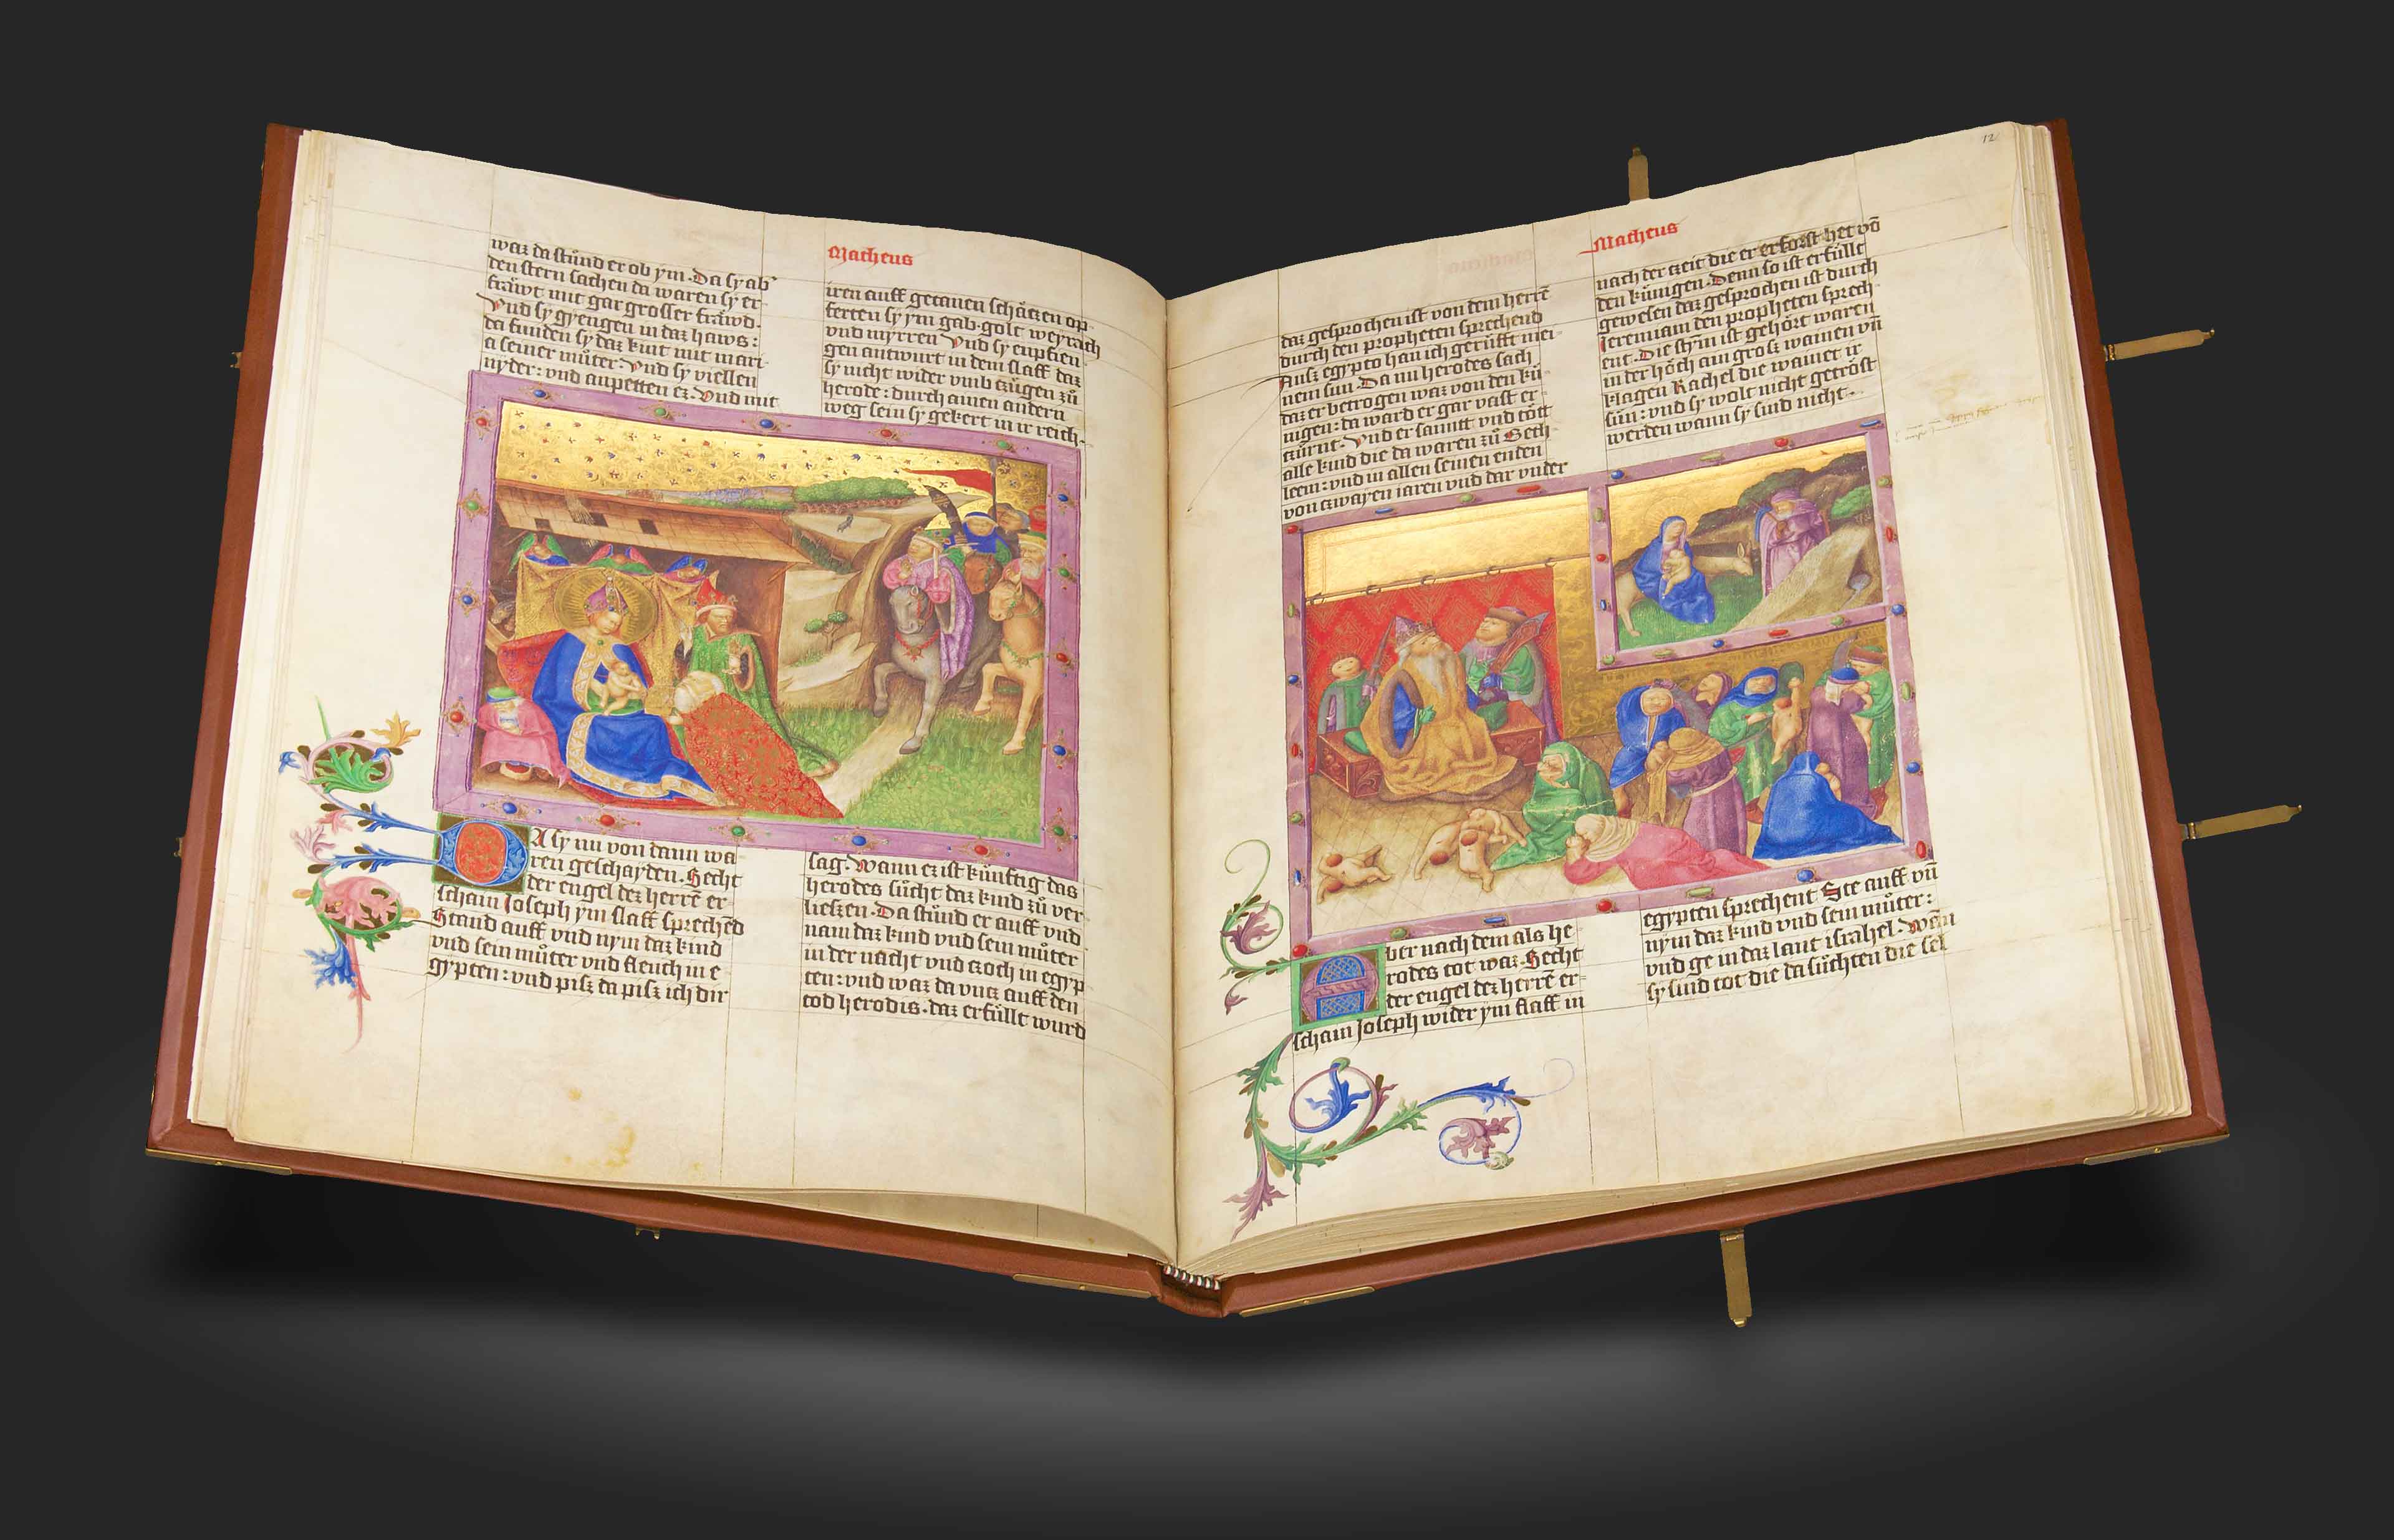 Matheus
waz da stůnd er ob ym. Da sy ab᾽
den stern sachen da waren sy er-
fräwt mit gar grosser fräwd.
Vnd sy gyengen in daz haws:
da funden sy daz kint mit mari-
a seiner můter. Vnd sy viellen
nyder: vnd anpetten ez. Vnd mit
iren auff getanen schäczen op-
ferten sy ym gab. golt weyrach
vnd myrren Vnd sy enpfien-
gen antwurt in dem slaff daz
sy nicht wider vmb czügen zů
herode: durch ainen andern
weg sein sy gekert in ir reich.
DA sy nu von dann wa-
ren geschayden. Secht
der engel dez herrē er
scham Joseph ym slaff sprechēd
Stand auff vnd nym daz kind
vnd sein můter vnd fleuch in e
gypten: vnd pisz da pisz ich dir
sag. Wann ez ist künftig das
herodes sůcht daz kind zů ver-
liesen. Da stůnd er auff vnd
nam daz kind vnd sein můter
in der nacht vnd czoch in egyp
ten: vnd waz da vncz auff den
tod herodis. daz erfüllt wurd
12
Matheus
daz gesprochen ist von dem herrē
durch den propheten sprechend
Ausz egypto han ich gerüfft mei-
nem sun. Da nu herodes sach
daz er betrogen waz von den kü-
nigen: da ward er gar vast er-
czürnt. Vnd er sannt vnd tött
alle kind die da waren zů Beth-
leem: vnd in allen seinen enden
von czwayen iaren vnd dar vnder
nach der czeit die er erforst het vō
den künigen. Denn so ist erfüllt
gewesen daz gesprochen ist durch
Jeremiam den propheten sprech-
ent. Die stym ist gehört waren
in der höch ain grosz wainen vn̄
klagen Rachel die wainet ir
sün: vnd sy wolt nicht getröst
werden wann sy sind nicht.
Aber nach dem als he
rodes tot waz. Secht
der engel dez herrē er-
scham Joseph wider ym slaff in
egypten sprechent Ste auff vn̄
nym daz kind vnd sein můter:
vnd ge in daz lant israhel. Wan
sy sind tot die da sůchten die sel